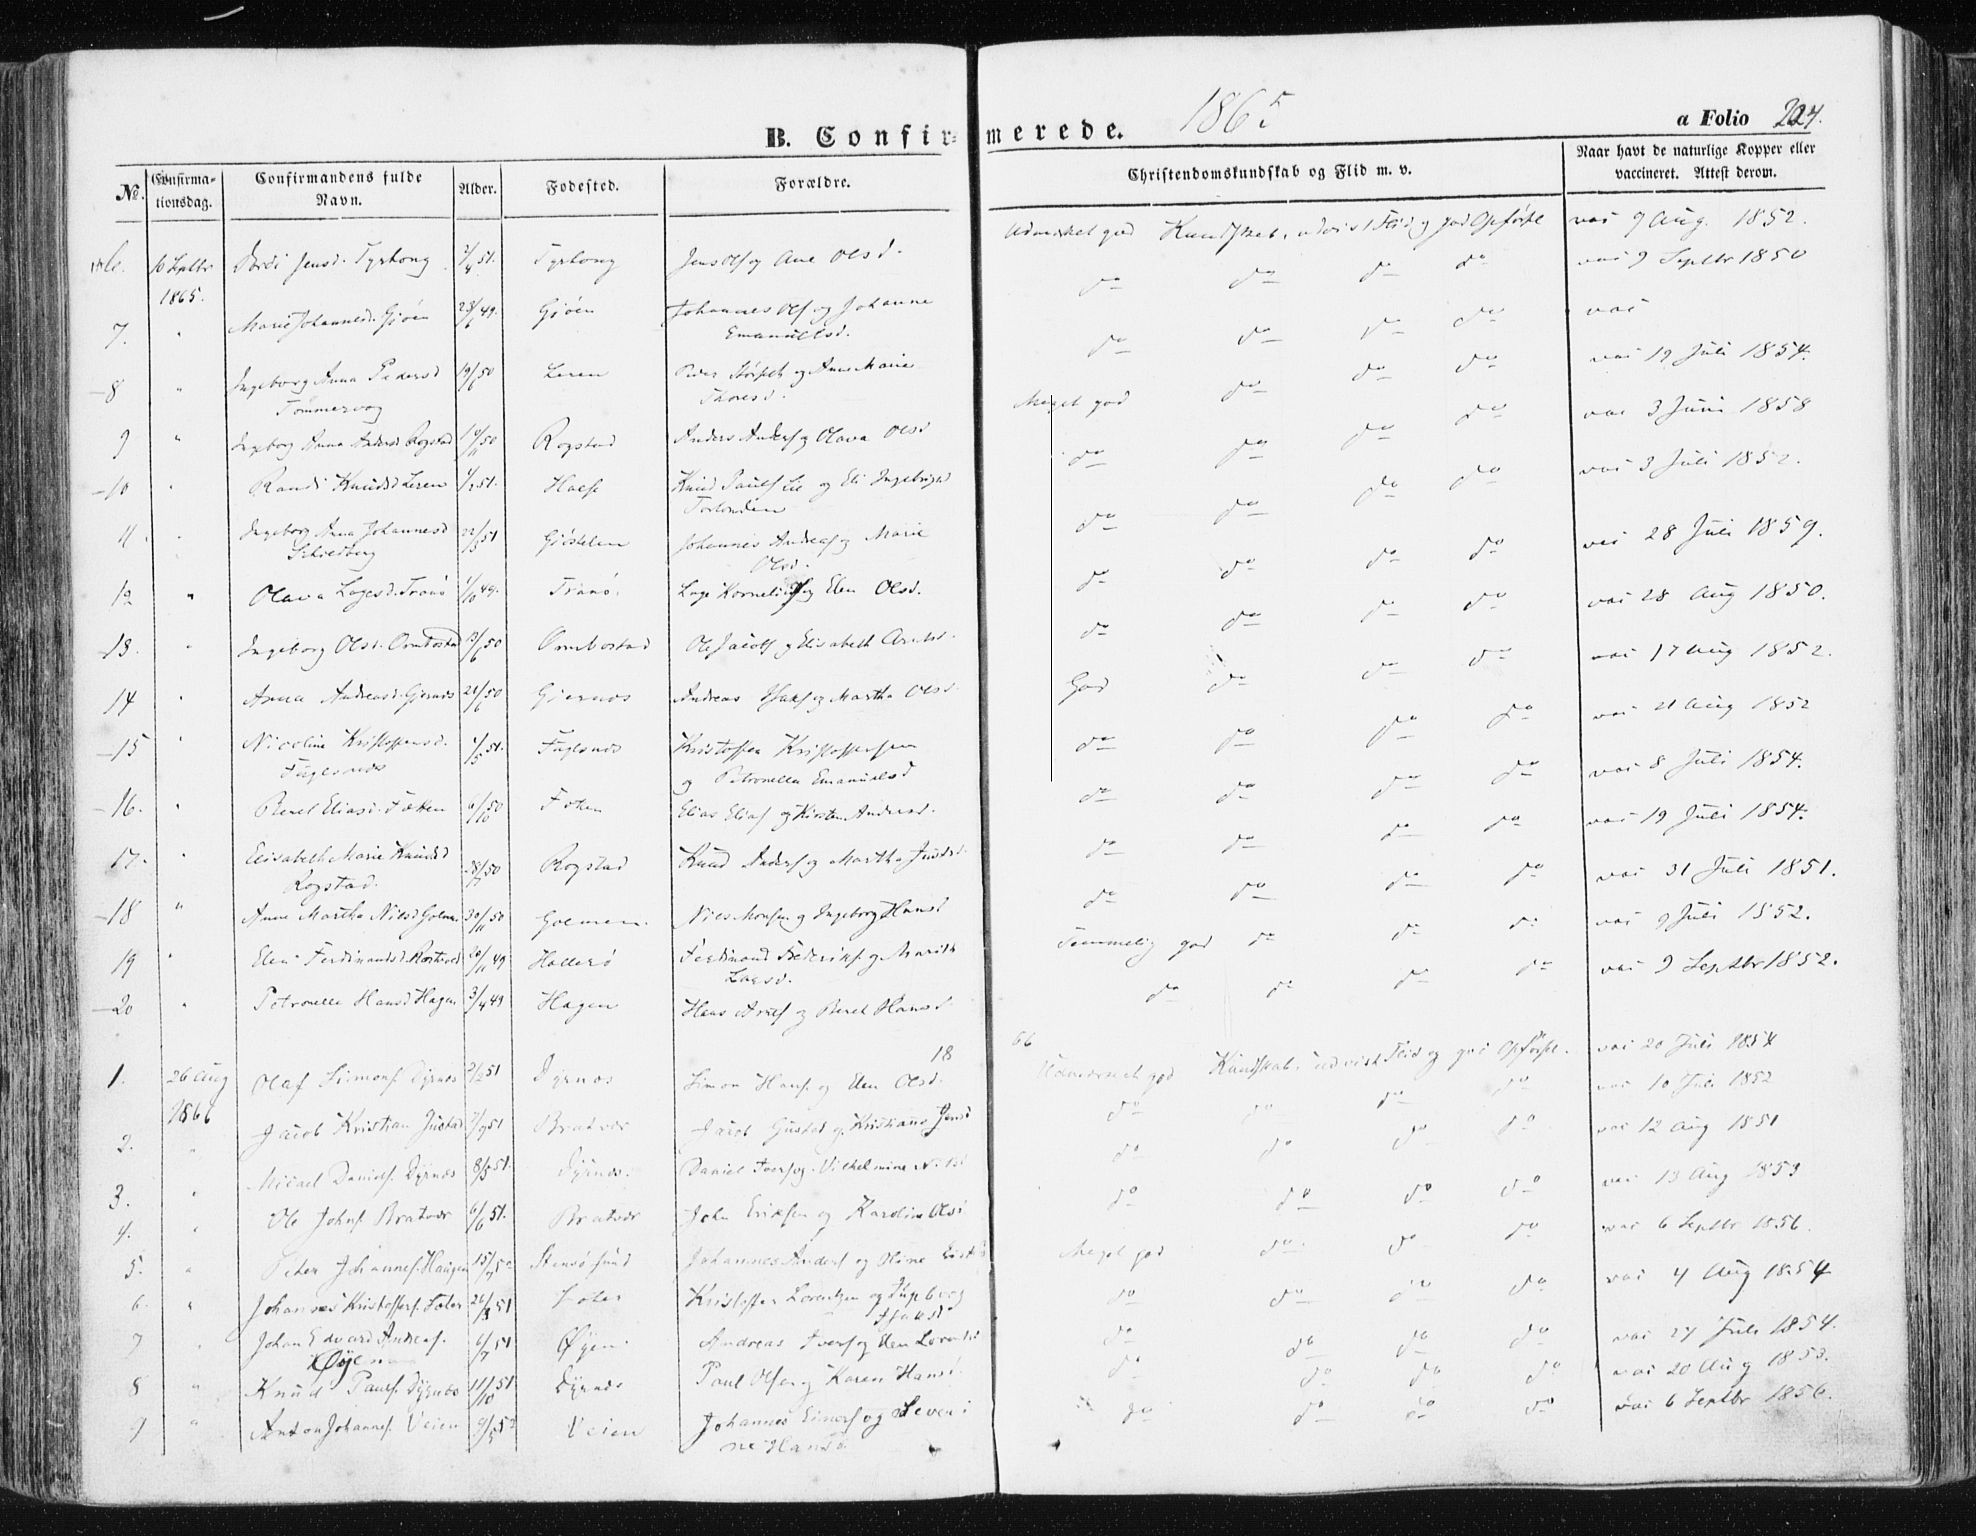 B. Confirmerede. 1865 a Folio 224.
No. Confirmationsdag. Confirmandens fulde Navn. Alder. Fødested. Forældre. Christendomskundskab og Flid m. v. Naar havt de naturlige Kopper eller vaccineret. Attest derom.
6. 10 Septbr 1865. Jensd. Tyrhong 51. Tyrhong Jens Ols og Ane Olsd. Udmærket god Kundskab, udvist Flid og god Opførsel vac 9 Aug. 1852.
7. " Marie Johannesd. Gjøen 49. Gjøen Johannes Ols og Johanne Emanuelsd. do do do do vac 9 Septbr 1850
8 " Ingeborg Anna Pedersd Tømmervog 19/6 50 Leren Peder og Ane Marie Thoresd. do do do do vac
9 " Ingeborg Anna Andersd Rogstad 50 Rogstad Anders Anders og Olava Olsd Meget god do do do vac 19 Juli 1854.
10 " Randi Knudsd Leren 51. Knud Pauls Lie og Eli Ingebrigtsd do do do do vac 3 Juni 1858
11. " Ingeborg Anna Johannesd 22/3 51 Johannes Andreas og Marie Olsd. do do do do vac 3 Juli 1852.
12 " Olava Lagesd. Tranø 1/10 49. Tranø. Lage Kornelius og Elen Olsd. do do do do vac 28 Juli 1859.
13. " Ingeborg Olsd. Ormbostad 3/6 50 Ormbostad Ole Jacobs og Elisabeth do do do do vac 28 Aug 1850.
14 " Anna Andreasd. Gjernes 21/6 50 Gjernes Andreas Isaks og Martha Olsd. God do do do vac 17 Aug 1852.
15 " Nicoline Kristoffersd. Fuglsnes 1/5 51. Fuglsnes Kristoffer Kristoffersen og Petronella Emanuelsd do do do do vac 21 Aug 1852
16. " Beret Eliasd. 6/10 50 Elias Elias og Kirsten Andersd. do do do do vac 8 Juli 1854.
17. " Elisabeth Marie Knudsd Rogstad. 50 Rogstad Knud Anders og Martha do do do do vac 19 Juli 1854.
18 " Anne Martha Nilsd Golmen 30/11 50 Golmen. Nils Monsen og Ingeborg Hansd do do do do vac 31 Juli 1851.
19 " Elen Ferdinandsd. 20/11 49 Hallerø Ferdinand Frederiks og Marith Lagesd. Temmelig god do do do vac 9 Juli 1852.
20 " Petronelle Hansd Hagen 3/4 49 Hagen Hans og Beret Hansd do do do do vac 9 Septbr 1852.
1866
1. 26 Aug 1866 Olaf Simons. Dyrnes 2/2 51 Dyrnes Simon Hans. og Elen Olsd. Udmærket god Kundskab, udvist Flid og god Opførsel. vac 20 Juli 1854
2. " Jacob Kristian Justad 7/9 51 Bratvær Jacob Gustad og Kristiane Jensd do do do do vac 10 Juli 1852
3. " Micael Daniels. Dyrnes 8/5 51. Dyrnes. Daniel Ivers og Vilhelmine Nilsd do do do do vac 12 Aug 1851
4. " Ole Johns. Bratvær 6/6 51. Bratvær John Eriksen og Karoline Olsd do do do do vac 13 Aug 1853
5. " Peter Johannes. Haugen 15/7 52 Stensøsund Johannes Anders og Oline Meget god do do do vac 6 Septbr 1856.
6. " Johannes Kristoffers. Soler 26/3 51 Soler Kristoffer Lorentzen og Ingeborg Isaksd do do do do vac 4 Aug 1854
7 " Johan Edvard Andreas. Øyen 6/7 51 Øyen. Andreas Ivers og Elen Lorentsd do do do do vac 27 Juli 1854.
8 " Knud Pauls. Dyrnes 11/10 51 Dyrnes Paul Olsen og Karen Hansd. do do do do vac 20 Aug 1853.
9 " Anton Johannes. Veien 9/5 52 Veien Johannes Einers og Severine Hansd. do do do do vac 6 Septbr 1856.